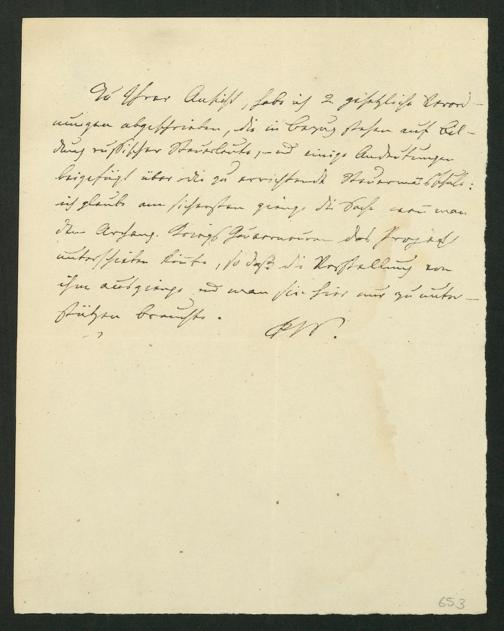 Zu Ihrer Ansicht, habe ich 2 gesetzliche Verord-
nungen abgeschrieben, die in Bezug stehen auf Bil-
dung russischer Steuerleute, und einige Andeutungen
beigefügt über die zu errichtende Steuermannsschule:
ich glaube am sichersten gienge die Sache wenn man
dem Archang. Kriegs Gouverneuren das Project
unterschieben könte, so daß die Vorstellung von
ihm ausgienge und man sie hier nur zu unter-
stützen brauchte.
653